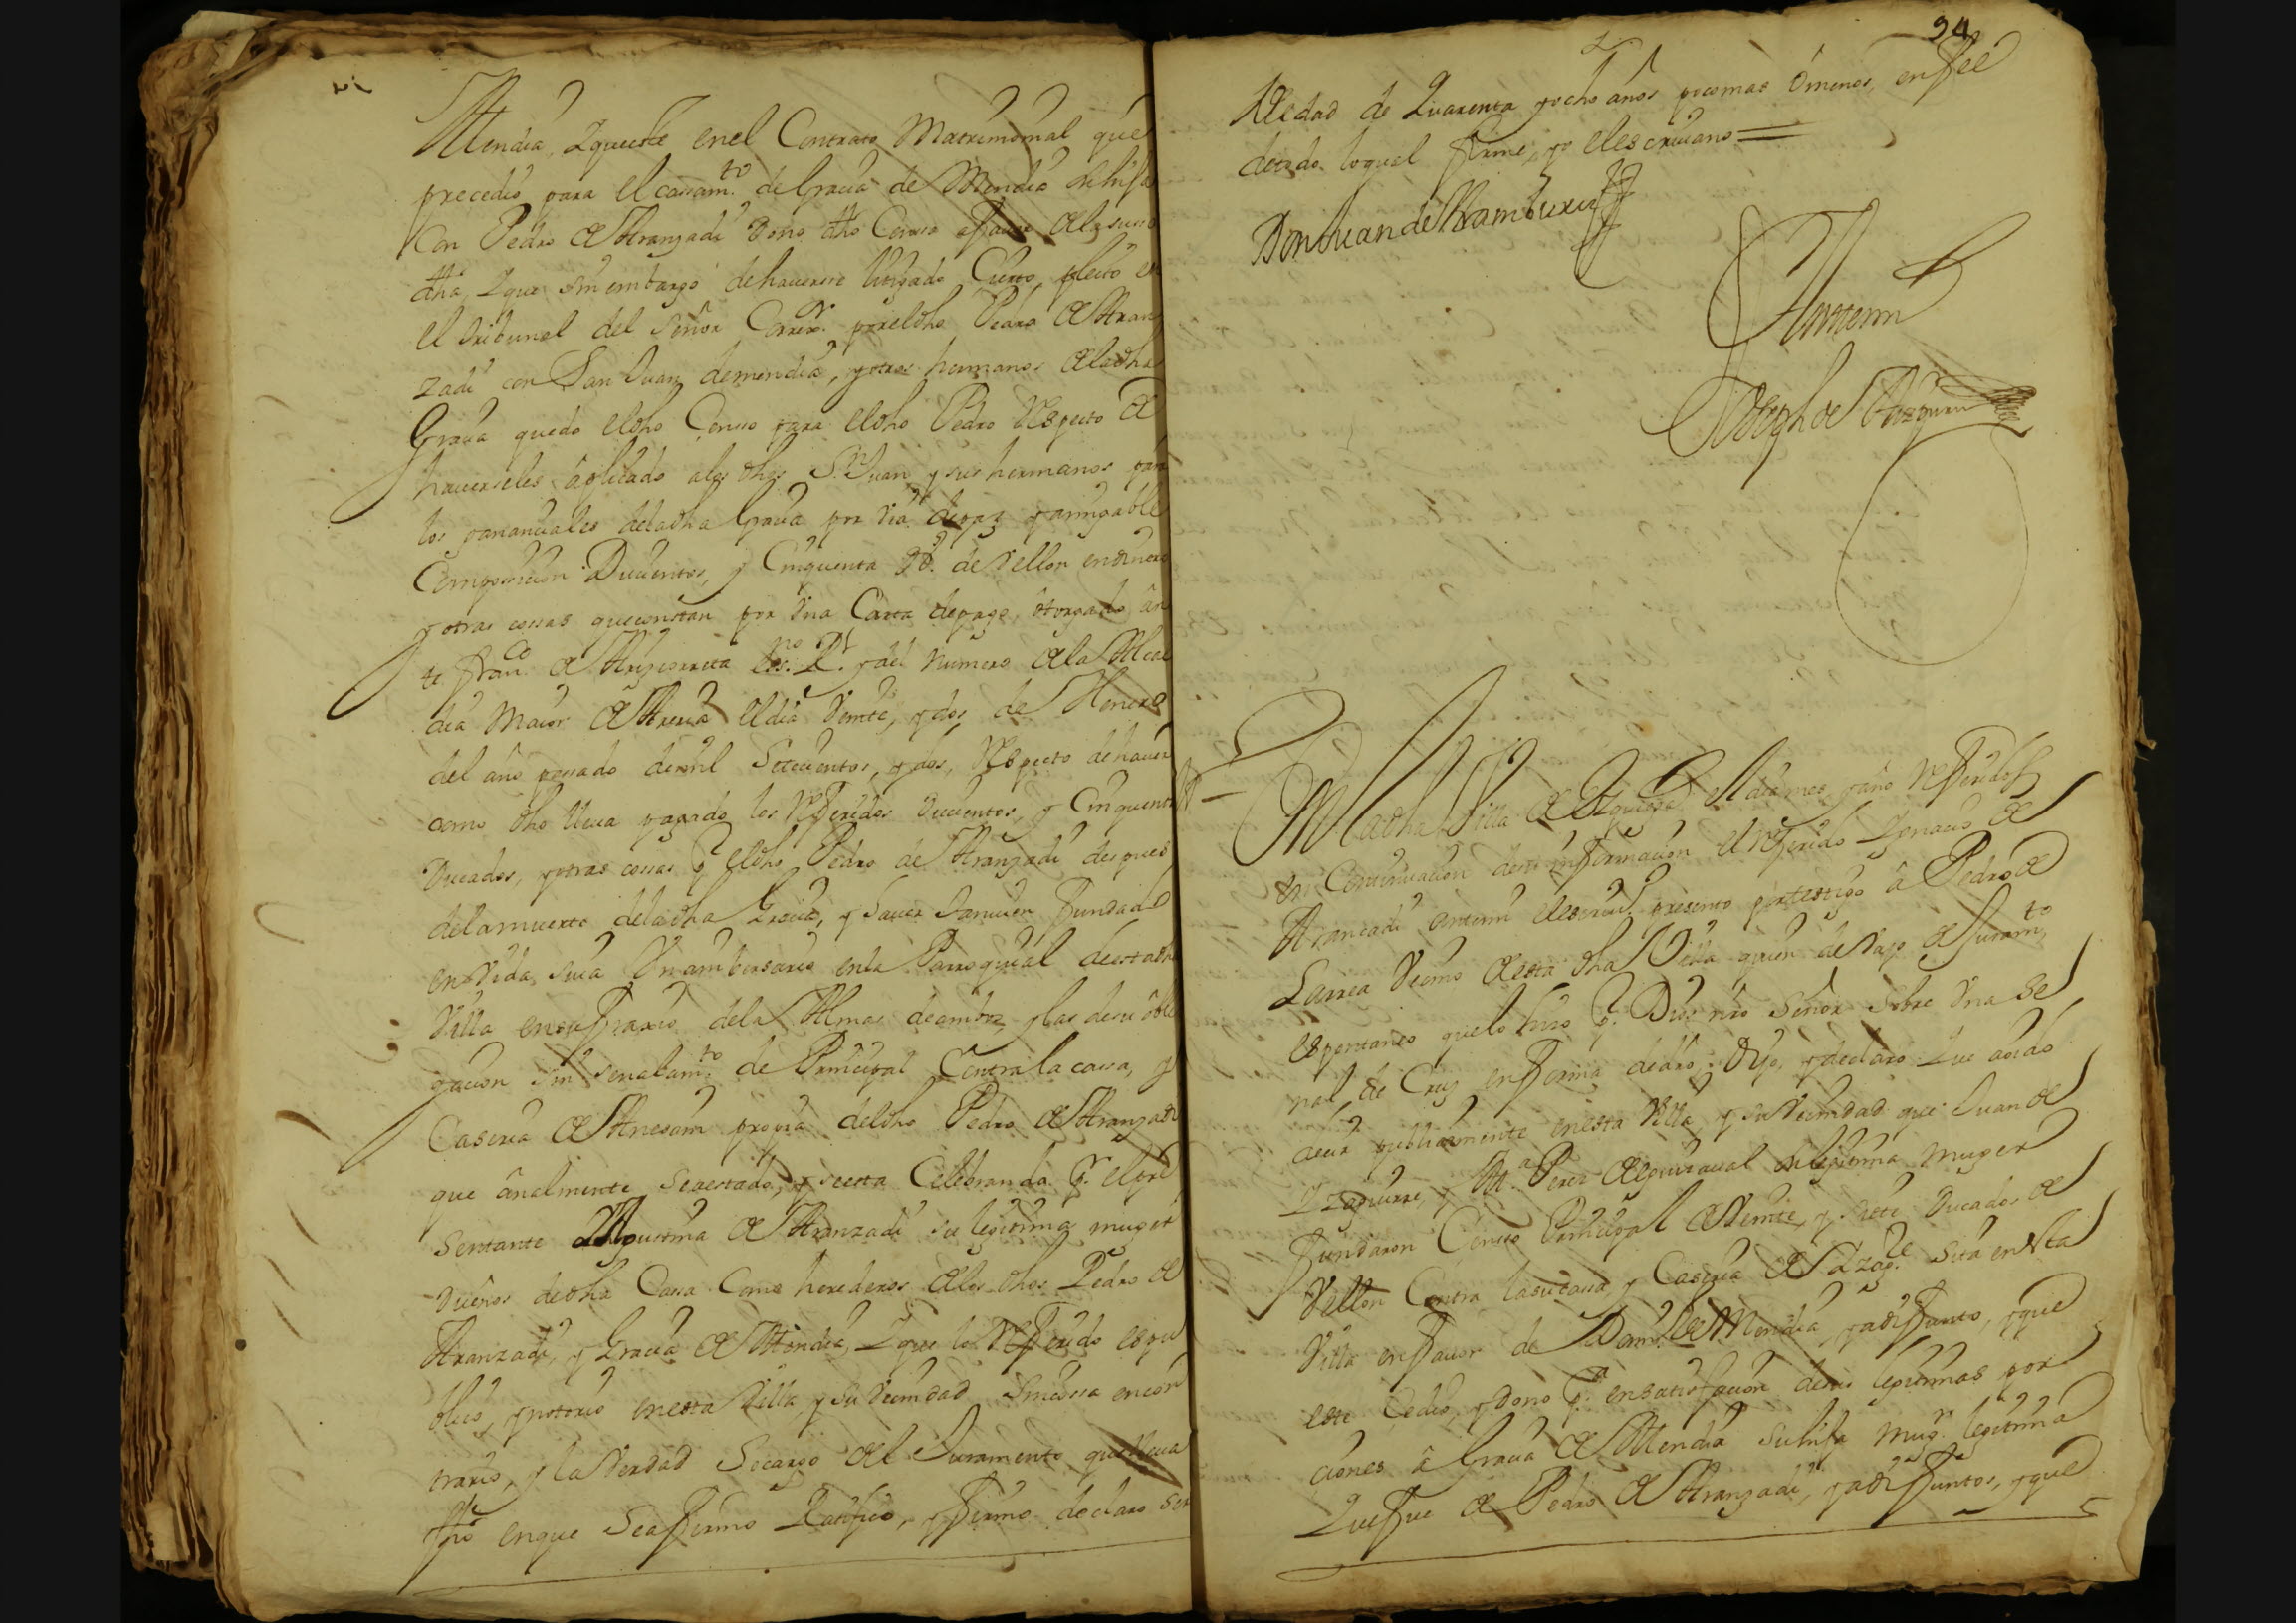 Mendia, Y que este en el Contrato Matrimonial que
precedio para el casam.to de Gracia de Mendia su hija
con Pedro de Aranzadi Dono dho Censo a fauor de la suso
dha, Y que sin embargo de hauerse litigado Cierto pleito en
el tribunal del Señor Correx.r por el dho Pedro de Aran
zadi con San Juan de mendia, y otros hermanos de la dha
Gracia quedo el dho Censo para el dho Pedro respecto de
hauerseles aplicado a los dhos S.n Juan y sus hermanos por
los gananciales de la dha Gracia por via de paz y amigable
Composicion Ducientos, y Cinquenta D.s de Vellon en dinero
y otras cosas que constan por Vna Carta de pago, otorgada an
te Fran.co de es.no R.l y del numero de la Alcal
dia Maior de Areria el dia Veinte, y dos de Henero
del año pasado de mil Setecientos, y dos, respecto de hauer
como dho lleua pagado los referidos Ducientos, y Cinquenta
Ducados, y otras cosas q el dho Pedro de Aranzadi despues
de la muerte de la dha Gracia, y sauer tambien fundado
en Vida suia Vn anibersario en la Parroquial de esta dha
Villa en sufraxio de las Almas de ambos y las de su obli
gacion sin señalam.to de Principal Contra la casa, y
Caseria de Anesam propia del dho Pedro de Aranzadi
que anualmente se a estado, y se esta Celebrando p.r el pre
sentante Agustina de Aranzadi su legitima muger
Dueños de dha Casa Como herederos de los dhos Pedro de
Aranzadi, y Gracia de Mendia, Y que lo referido es pu
blico, y notorio en esta Villa, y su Vecindad sin cosa en con
trario, y la Verdad So cargo del Juramento que lleua
fho en que Se afirmo Ratifico, y firmo declaro ser
94
de edad de Quarenta y ocho años poco mas o menos, en fee
de todo lo qual firme, yo el escriuano =
Don Juan de Aramburu
Ante mi
Joseph de
En la dha Villa de el dia mes, y año referidos
en Continuacion de su informacion el referido Ygnacio de
Aranzadi ante mi el escriu.o presento por testigo a Pedro de
Larrea Vecino de esta dha Villa quien de Vajo de Juram.to
espontaneo que lo hizo p.r Dios nro Señor Sobre Vna Se
ñal de Cruz en forma de dro, Dijo, y declaro Que a oido
decir publicamente en esta Villa, y su Vecindad que Juan de
Yzaguirre, y M.a Perez de su legitima muger
fundaron Censo Principal de Veinte, y siete Ducados de
Vellon Contra la su casa, y Caseria de Yzag.e Sita en esta
Villa en fauor de Dom.o de Mendia, ya difunto, y que
este Cedio, y Dono p.a en satisfacion de sus legitimas por
ciones a Gracia de Mendia su hija mug.r legitima
Que fue de Pedro de Aranzadi, ya difuntos, y que